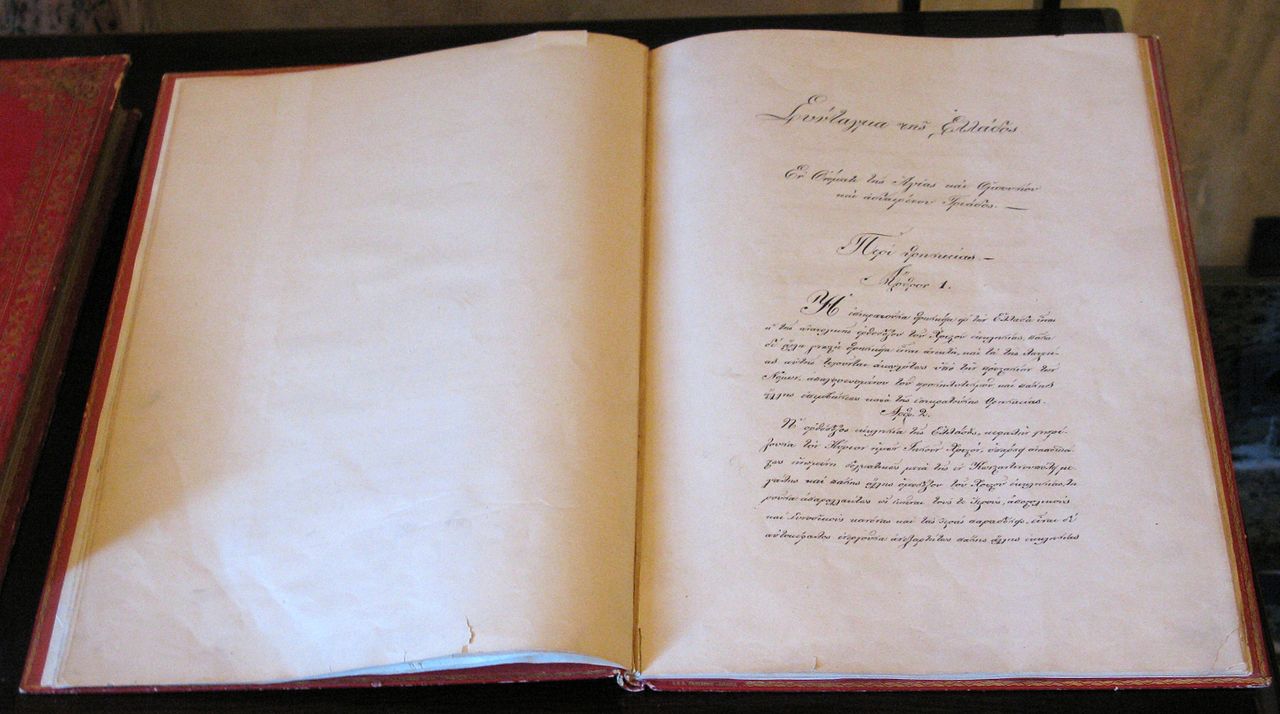 Σύνταγμα τῆς Ἑλλάδος
Ἐν Ὀνόματι τῆς Ἁγίας καὶ Ὁμοουσίου
καὶ ἀδιαιρέτου Τριάδος. —
Περὶ θρησκείας. —
Ἄρθρον 1.
Ἡ ἐπικρατοῦσα θρησκεία εἰς τὴν Ἑλλάδα εἶναι
ἡ τῆς ἀνατολικῆς ὀρθοδόξου τοῦ Χριστοῦ ἐκκλησίας, πᾶσα
δὲ ἄλλη γνωστὴ θρησκεία εἶναι ἀνεκτὴ, καὶ τὰ τῆς λατρεί-
ας αὐτῆς τελοῦνται ἀκωλύτως ὑπὸ τὴν προστασίαν τῶν
Νόμων, ἀπαγορευομένου τοῦ προσηλυτισμοῦ καὶ πάσης
ἄλλης ἐπεμβάσεως κατὰ τῆς ἐπικρατούσης θρησκείας.
Ἄρθρ. 2.
Ἡ ὀρθόδοξος ἐκκλησία τῆς Ἑλλάδος, κεφαλὴν γνωρί-
ζουσα τὸν Κύριον ἡμῶν Ἰησοῦν Χριστὸν, ὑπάρχει ἀναποσπά-
στως ἡνωμένη δογματικῶς μετὰ τῆς ἐν Κωνσταντινουπόλει με-
γάλης καὶ πάσης ἄλλης ὁμοδόξου τοῦ Χριστοῦ ἐκκλησίας, τη-
ροῦσα ἀπαραλλάκτως ὡς ἐκεῖναι τούς τε ἱεροὺς ἀποστολικοὺς
καὶ Συνοδικοὺς κανόνας καὶ τὰς ἱερὰς παραδόσεις, εἶναι δὲ
αὐτοκέφαλος ἐνεργοῦσα ἀνεξαρτήτως πάσης ἄλλης ἐκκλησίας